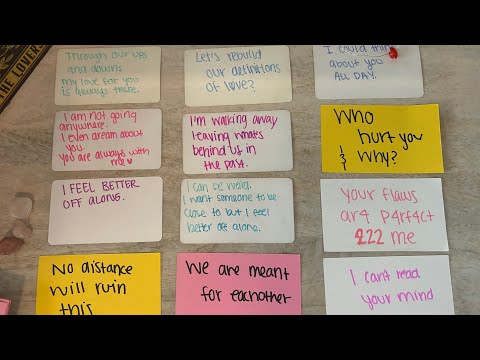 THE LOVERS
Through our ups
and downs
my love for you
is always there.
Let's rebuild
our definitions
of love?
I could think
about you
ALL DAY.
I am not going
anywhere.
I even dream about
you.
you are always with
me
I'm walking away
leaving what's
behind us in
the past.
Who
hurt you
& why?
I FEEL BETTER
OFF ALONE.
I can be weird.
I want someone to be
close to but I feel
better off alone.
your flaws
ar4 p4rf4ct
222 me
No distance
will ruin
this
We are meant
for eachother
I can't read
your mind